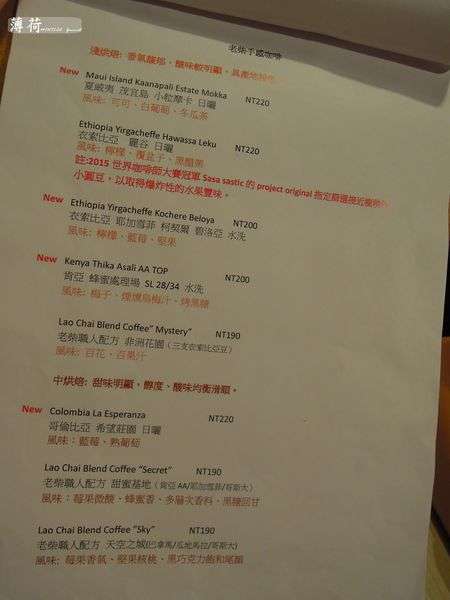 薄荷
老柴手感咖啡
淺烘焙: 香氣馥郁、酸味較明顯、具產地特性
New Maui Island Kaanapali Estate Mokka NT220
夏威夷 茂宜島 小粒摩卡 日曬
風味: 可可、白葡萄、冬瓜茶
Ethiopia Yirgacheffe Hawassa Leku NT220
衣索比亞 麗谷 日曬
風味: 檸檬、覆盆子、黑醋栗
註:2015 世界咖啡師大賽冠軍 Sasa sastic 的 project original 指定篩選接近
小圓豆，以取得爆炸性的水果豐味。
New Ethiopia Yirgacheffe Kochere Beloya NT200
衣索比亞 耶加雪菲 柯契爾 碧洛亞 水洗
風味: 檸檬、藍莓、堅果
New Kenya Thika Asali AA TOP NT200
肯亞 蜂蜜處理場 SL 28/34 水洗
風味: 梅子、煙燻烏梅汁、烤黑糖
Lao Chai Blend Coffee" Mystery" NT190
老柴職人配方 非洲花園 (三支衣索比亞豆)
風味: 百花、百果汁
中烘焙: 甜味明顯，醇度、酸味均衡滑順。
New Colombia La Esperanza NT220
哥倫比亞 希望莊園 日曬
風味：藍莓、熟葡萄
Lao Chai Blend Coffee "Secret" NT190
老柴職人配方 甜蜜基地 (肯亞 AA/耶加雪菲/哥斯大)
風味：莓果微酸、蜂蜜香、多層次香料、黑糖回甘
Lao Chai Blend Coffee "Sky" NT190
老柴職人配方 天空之城(巴拿馬/瓜地馬拉/哥斯大)
風味: 莓果香氣、堅果核桃、黑巧克力飽和尾韻